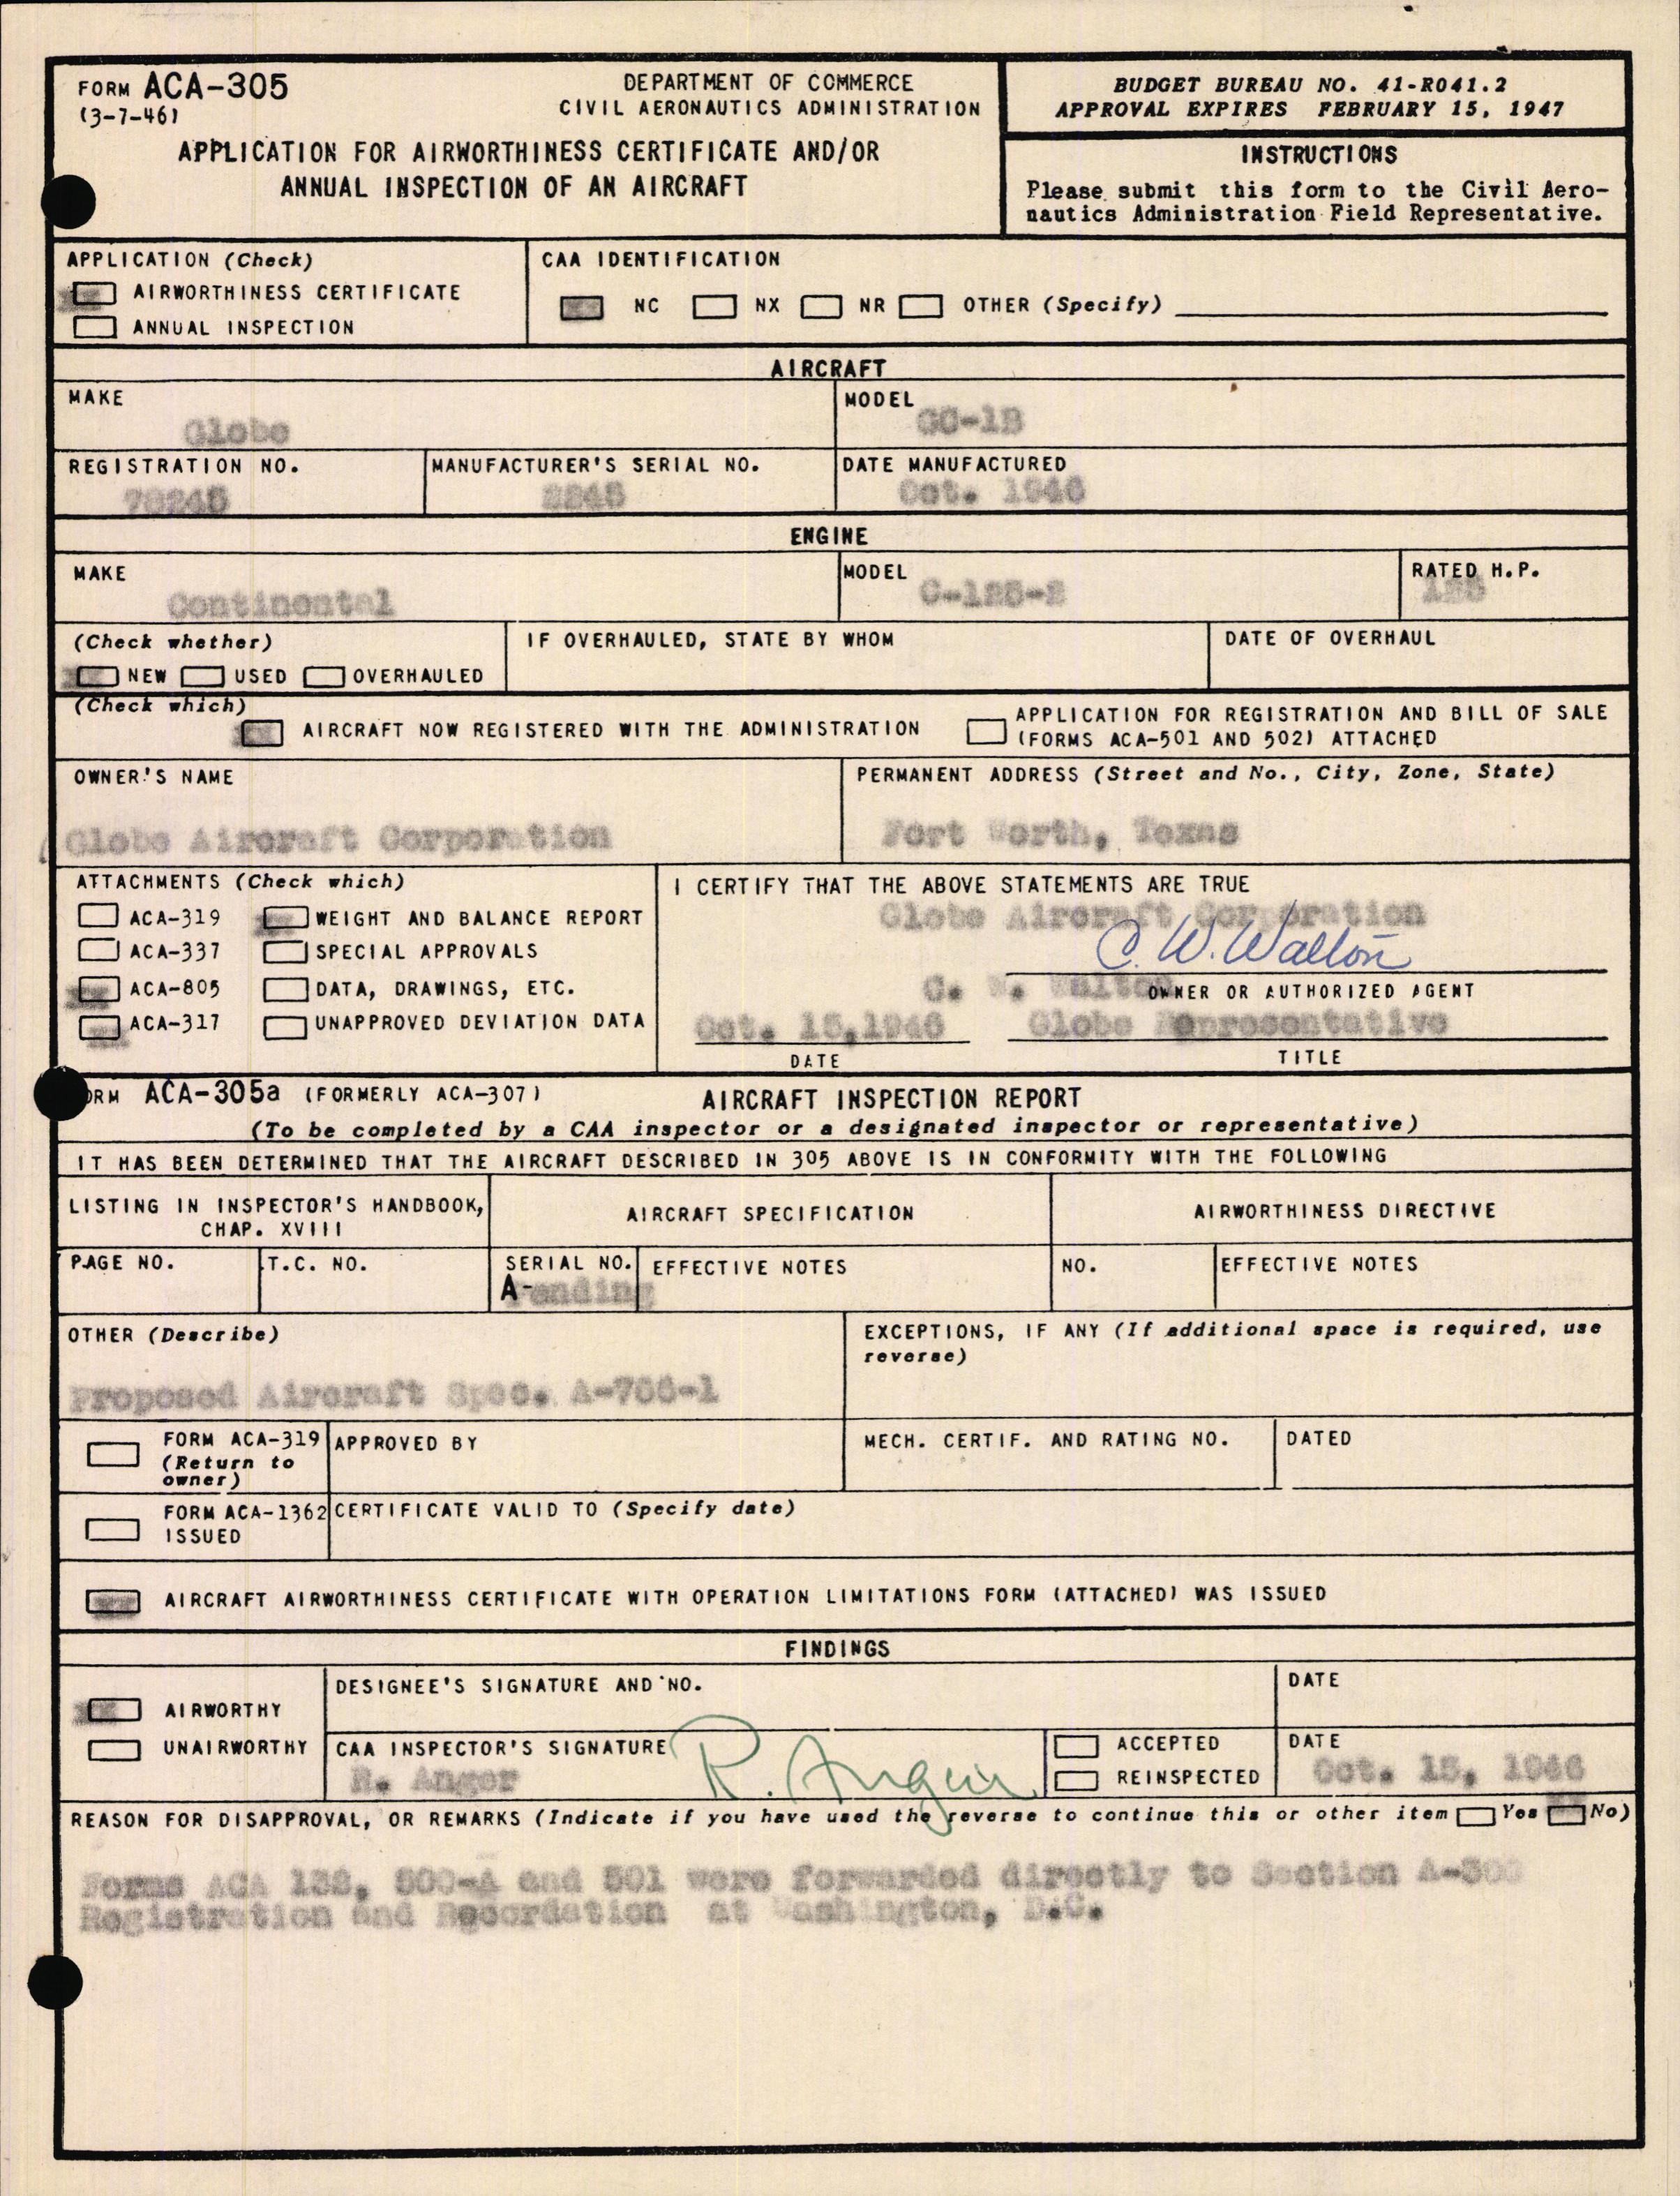 FORM ACA-305
(3-7-46)
DEPARTMENT OF COMMERCE
CIVIL AERONAUTICS ADMINISTRATION
APPLICATION FOR AIRWORTHINESS CERTIFICATE AND/OR
ANNUAL INSPECTION OF AN AIRCRAFT
BUDGET BUREAU NO. 41-R041.2
APPROVAL EXPIRES FEBRUARY 15, 1947
INSTRUCTIONS
Please submit this form to the Civil Aero-
nautics Administration Field Representative.
APPLICATION (Check)
AIRWORTHINESS CERTIFICATE
ANNUAL INSPECTION
CAA IDENTIFICATION
NC NX NR OTHER (Specify)
AIRCRAFT
MAKE
Globe
MODEL
GC-1B
REGISTRATION NO.
MANUFACTURER'S SERIAL NO.
DATE MANUFACTURED
Oct. 1946
ENGINE
MAKE
Continental
MODEL
C-125-2
RATED H.P.
125
(Check whether)
NEW USED OVERHAULED
IF OVERHAULED, STATE BY WHOM
DATE OF OVERHAUL
(Check which)
AIRCRAFT NOW REGISTERED WITH THE ADMINISTRATION
APPLICATION FOR REGISTRATION AND BILL OF SALE
(FORMS ACA-501 AND 502) ATTACHED
OWNER'S NAME
Globe Aircraft Corporation
PERMANENT ADDRESS (Street and No., City, Zone, State)
Fort Worth, Texas
ATTACHMENTS (Check which)
ACA-319 WEIGHT AND BALANCE REPORT
ACA-337 SPECIAL APPROVALS
ACA-805 DATA, DRAWINGS, ETC.
ACA-317 UNAPPROVED DEVIATION DATA
I CERTIFY THAT THE ABOVE STATEMENTS ARE TRUE
Globe Aircraft Corporation
C. W. Walton
C. W. Walton
OWNER OR AUTHORIZED AGENT
Oct. 15,1946 Globe Representative
DATE TITLE
ORM ACA-305a (FORMERLY ACA-307) AIRCRAFT INSPECTION REPORT
(To be completed by a CAA inspector or a designated inspector or representative)
IT HAS BEEN DETERMINED THAT THE AIRCRAFT DESCRIBED IN 305 ABOVE IS IN CONFORMITY WITH THE FOLLOWING
LISTING IN INSPECTOR'S HANDBOOK,
CHAP. XVIII
AIRCRAFT SPECIFICATION
AIRWORTHINESS DIRECTIVE
PAGE NO.
T.C. NO.
SERIAL NO.
A-Pending
EFFECTIVE NOTES
NO.
EFFECTIVE NOTES
OTHER (Describe)
Proposed Aircraft Spec. A-766-1
EXCEPTIONS, IF ANY (If additional space is required, use
reverse)
FORM ACA-319
(Return to
owner)
APPROVED BY
MECH. CERTIF. AND RATING NO.
DATED
FORM ACA-1362
ISSUED
CERTIFICATE VALID TO (Specify date)
AIRCRAFT AIRWORTHINESS CERTIFICATE WITH OPERATION LIMITATIONS FORM (ATTACHED) WAS ISSUED
FINDINGS
AIRWORTHY
UNAIRWORTHY
DESIGNEE'S SIGNATURE AND NO.
DATE
CAA INSPECTOR'S SIGNATURE
R. Anger
R. Anger
ACCEPTED
REINSPECTED
DATE
Oct. 15, 1946
REASON FOR DISAPPROVAL, OR REMARKS (Indicate if you have used the reverse to continue this or other item Yes No)
Forms ACA 132, 500-A and 501 were forwarded directly to Section A-300
Registration and Recordation at Washington, D.C.